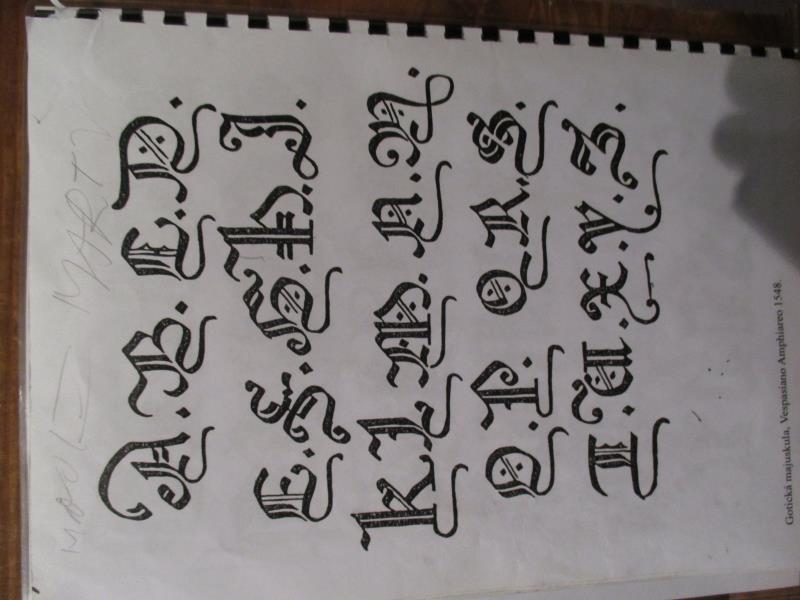 A. B. C. D.
E. F. G. H. I.
K L M. N. N.
O. P. Q R. S.
T. U. X. Y. Z.
Gotická majuskula, Vespasiano Amphiareo 1548.